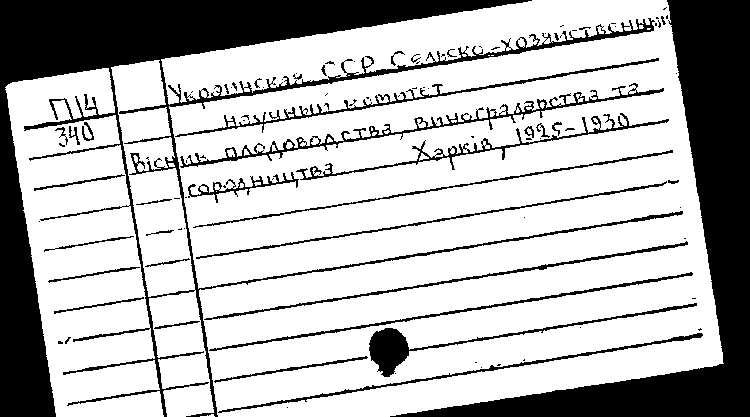 П14
340
Украинская ССР Сельско-хозяйственный
научный комитет
Вісник плодоводства, виноградарства та
городництва Харків, 1925-1930